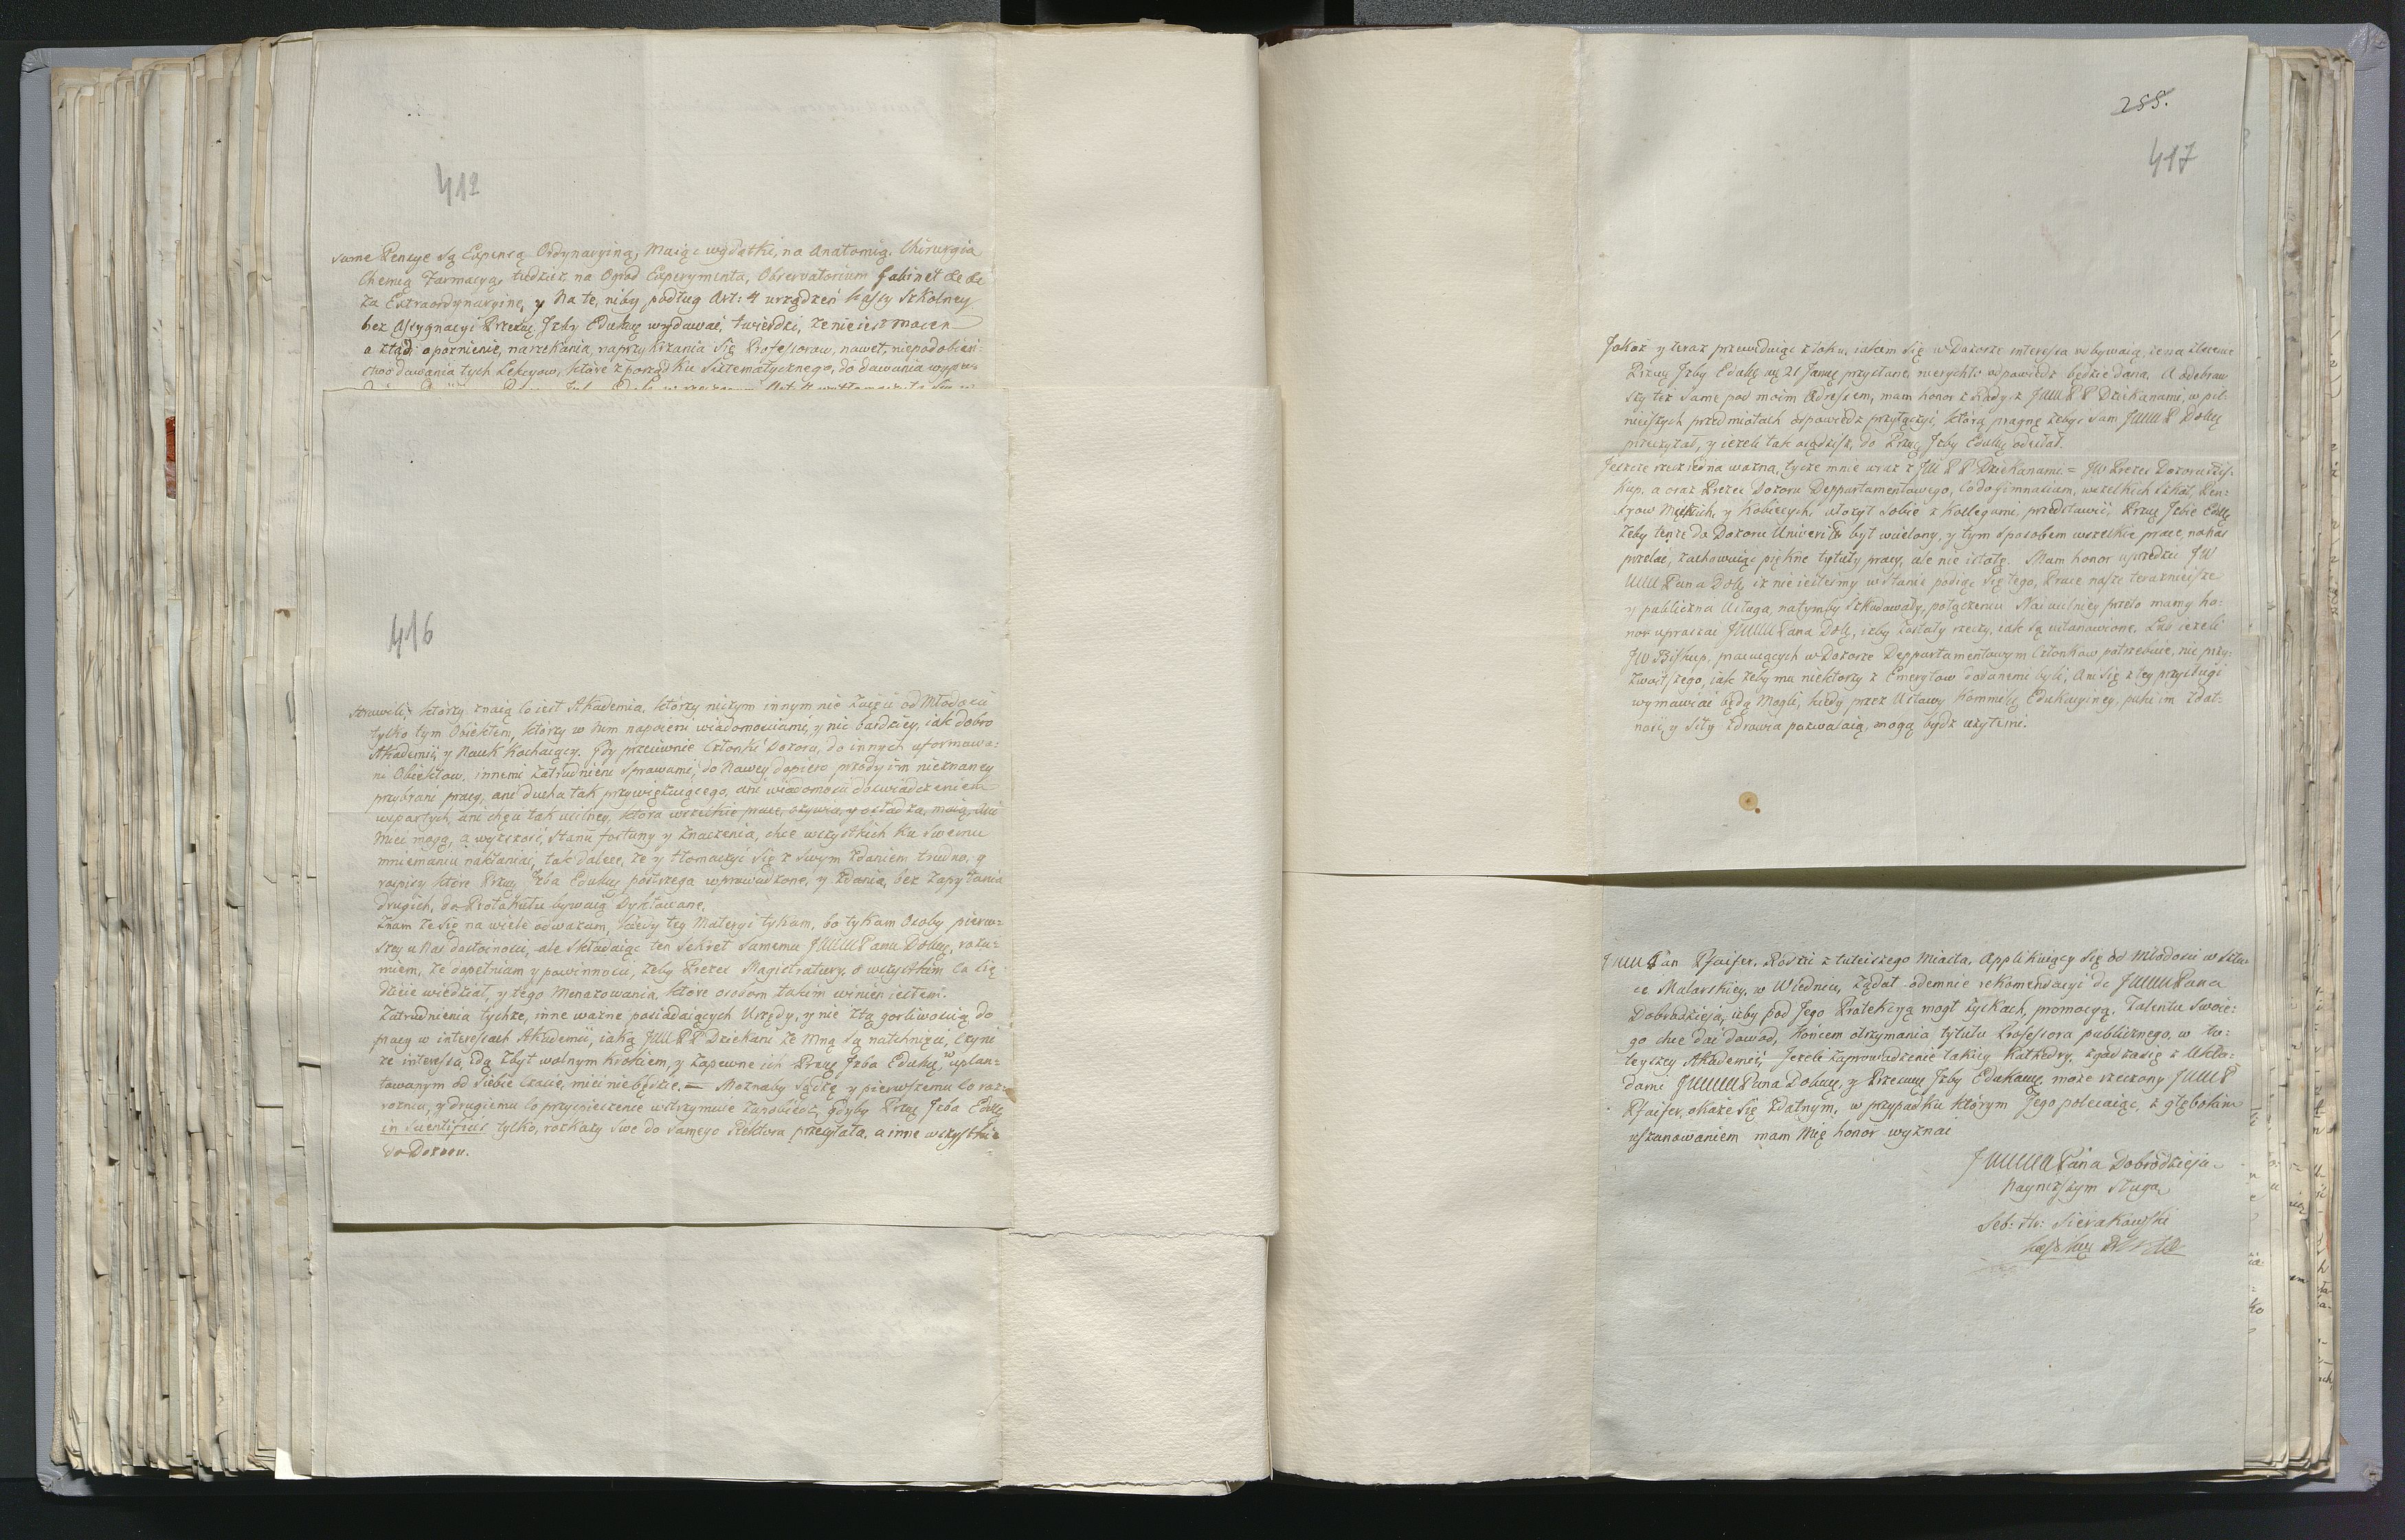 412
same Pensye są Expensą Ordynacyiną, Maiąc wydatki, na Anatomią, Chirurgią
Chemią Farmacyą, tudzież na Ogród Experymenta, Observatorium Gabinet &c &c
za Extraordynaryine, y Na te, niby, podług Art: 4 urządzeń kassy Szkolney
bez Assygnacyi Prześ: Izby Eduk: wydawać, twierdzi, że nie iest mocen
a ztąd opoznienie, narzekania, naprzykrzania się Professorow, nawet, niepodobień:
stwo dawania tych Lekcyow, które z porządku Sistematycznego, do dawania
416
strawili, którzy znaią co iest Akademia, którzy niczym innym nie zaięci od Młodości
tylko tym Obiektem, którzy w Nim napoieni wiadomościami, y nic bardziey, iak dobro
Akademii, y Nauk Kochaiący. Gdy przeciwnie Członki Dozoru, do innych uformowa:
ni Obiektow, innemi zatrudnieni Sprawami, do Nowey dopiero prződy im nieznaney
przybrani pracy, ani ducha tak przywięzuiącego, ani wiadomości doswiadczeniem
wspartych, ani chęci tak usilney, która wszelkie prace, ożywia, y osładza, maią, ani
mieć mogą, a wyższość, Stanu fortuny y Znaczenia, chce wszystkich ku swemu
mniemaniu nakłaniać, tak dalece, że y tłomaczyć się z swym zdaniem trudno, y
rospisy które Prześ: Izba Eduk: postrzega wprowadzone, y zdania, bez zapytania
drugich, do Protokułu bywaią Dyktowane.
Znam że się na wiele odważam, kiedy tey Materyi tykam, bo tykam Osoby pierw:
szey u Nas dostoiności, ale składaiąc ten Sekret samemu JWWPanu Dobr:, rozu:
miem, że dopełniam y powinności, żeby Prezes Magistratury, o wszystkim co się
dzieie wiedział, y tego Menażowania, które osobom takim winien iestem.
Zatrudnienia tychże, inne ważne posiadaiących Urzędy, y nie ztą gorliwością do
pracy w interessach Akademii, iaką JWPP Dziekani ze Mną są natchnięci, czyni
że interessa idą zbyt wolnym krokiem, y zapewne ich Prześ: Izba Eduk: w uplan:
towanym od siebie czasie, mieć niebędzie. — Możnaby sądzę y pierwszemu co roz:
rożnia, y drugiemu co przyspieszenie wstrzymuie zapobiedz, gdyby Prześ: Izba Eduk:
in Scientificis tylko, rozkazy swe do samego Rektora przesyłała, a inne wszystkie
do Dozoru.
255.
417
Jakoż y teraz przewiduiąc z toku, iakim się w Dozorze interessa odbywaią, że na zlecenie
Prześ: Izby Eduk: 21 przysłane, nierychło odpowiedź będzie dana. A odebraw
szy też same pod moim Adressem, mam honor z Rady, z JWW PP Dziekanami, w pil:
nieiszych przedmiotach odpowiedź przyłączyć, którą pragnę żebyś sam JWWP Dobr:
przeczytał, y ieżeli tak osądzisz, do Prześ: Izby Eduk: odesłał.
Jeszcze rzecz iedna ważna, tycze mnie wraz z JW PP Dziekanami = JW Prezes Dozoru Bis:
kup, a oraz Prezes Dozoru Deppartamentowego, co do Gimnasium, wszelkich Szkoł, Pen:
syow Męskich, y Kobiecych, ułożył sobie z Kollegami, przedstawić, Prześ: Izbie Eduk:
żeby tenże do Dozoru Uniwersit: był wcielony, y tym sposobem wszelkie prace, na nas
przelać, zachowuiąc piękne tytuły pracy, ale nie istotę. Mam honor uprzedzić JW
WW Pana Dobr: iż nie iesteśmy w stanie podiąć się tego, Prace nasze teraznieysze
y publiczna usługa, na tymby szkodowały, połączeniu Nayusilniey przeto mamy ho:
nor upraszać JWWW Pana Dobr:, iżby zostały rzeczy, iak są ustanowione. Lub ieżeli
JW Biskup, pracuiących w Dozorze Deppartamentowym Członkow potrzebuie, nic przy:
zwoitszego, iak żeby mu niektorzy z Emerytow dodanemi byli, Ani się z tey przysługi
wymawiać będą Mogli, kiedy przez Ustawy Kommissyi Edukacyiney, puki im zdat:
ność, y siły zdrowia pozwalaią, mogą bydź użytemi.
JWW Pan Pfaifer, Rodzi z tuteiszego Miasta, Applikuiący się od Młodości w Sztu:
ce Malarskiey, w Wiedniu, żądał odemnie rekomendacyi do JWWW Pana
Dobrodzieja, iżby pod Jego Protekcyą mogł zyskać, promocyą. Talentu swoie:
go chce dać dowod, końcem otrzymania tytułu Professora publicznego, w tu:
teyszey Akademii, Jeżeli zaprowadzenie takiey Kathedry, zgadza się z Ukła:
dami JWWW Pana Dobr:, y Prześw: Izby Edukac:, może rzeczony JWWP
Pfaifer, okaże się zdatnym, w przypadku którym Jego polecaiąc, z głębokim
uszanowaniem mam Mię honor wyznać
JWWWW Pana Dobrodzieja
nayniższym sługą
Seb: Hr: Sierakowski